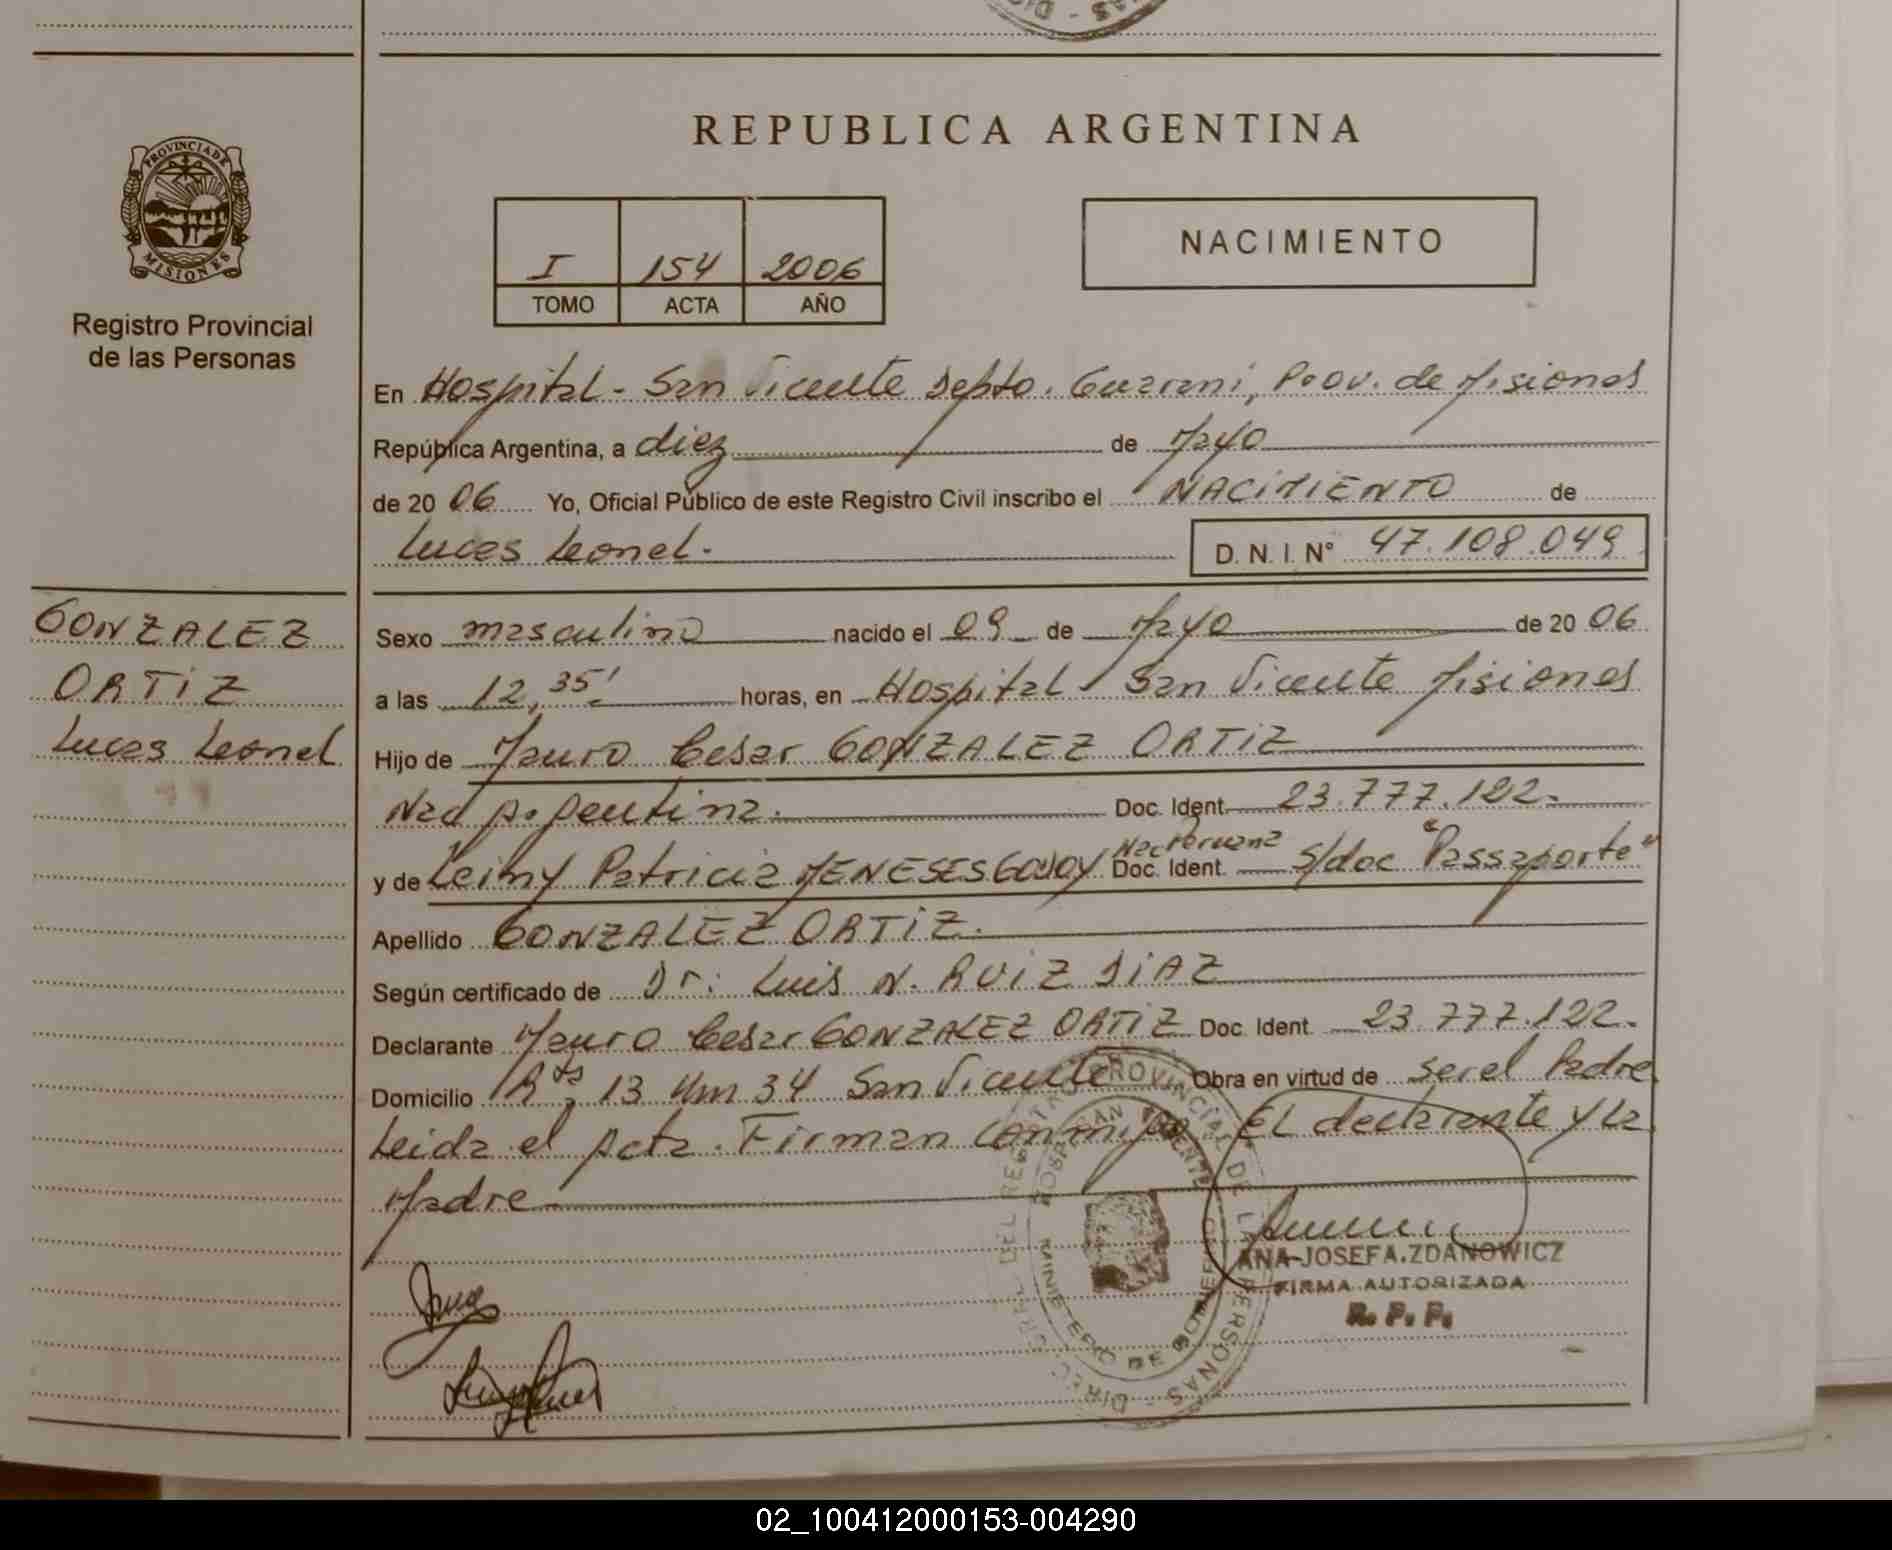 PROVINCIA DE
MISIONES
Registro Provincial
de las Personas
GONZALEZ
ORTIZ
Lucas Leonel
REPUBLICA ARGENTINA
I 154 2006
TOMO ACTA AÑO
NACIMIENTO
En Hospital - San Vicente Depto. Guarani, Prov. de Misiones
República Argentina, a diez de Mayo
de 20 06 Yo, Oficial Público de este Registro Civil inscribo el NACIMIENTO de
Lucas Leonel.
D. N. I. N° 47.108.049
Sexo masculino nacido el 09 de Mayo de 20 06
a las 12,35' horas, en Hospital San Vicente Misiones
Hijo de Mauro Cesar GONZALEZ ORTIZ
Nac Argentina. Doc. Ident. 23.777.122.
y de Leiny Patricia MENESES GODOY Nac Peruana Doc. Ident. S/doc "Passaporte"
Apellido GONZALEZ ORTIZ.
Según certificado de Dr: Luis N. RUIZ DIAZ
Declarante Mauro Cesar GONZALEZ ORTIZ Doc. Ident. 23.777.122.
Domicilio Rta 13 Km 34 San Vicente Obra en virtud de ser el Padre
Leida el Acta. Firman conmigo EL declarante y la
Madre
ANA JOSEFA ZDANOWICZ
FIRMA AUTORIZADA
R. P. P.
02_100412000153-004290